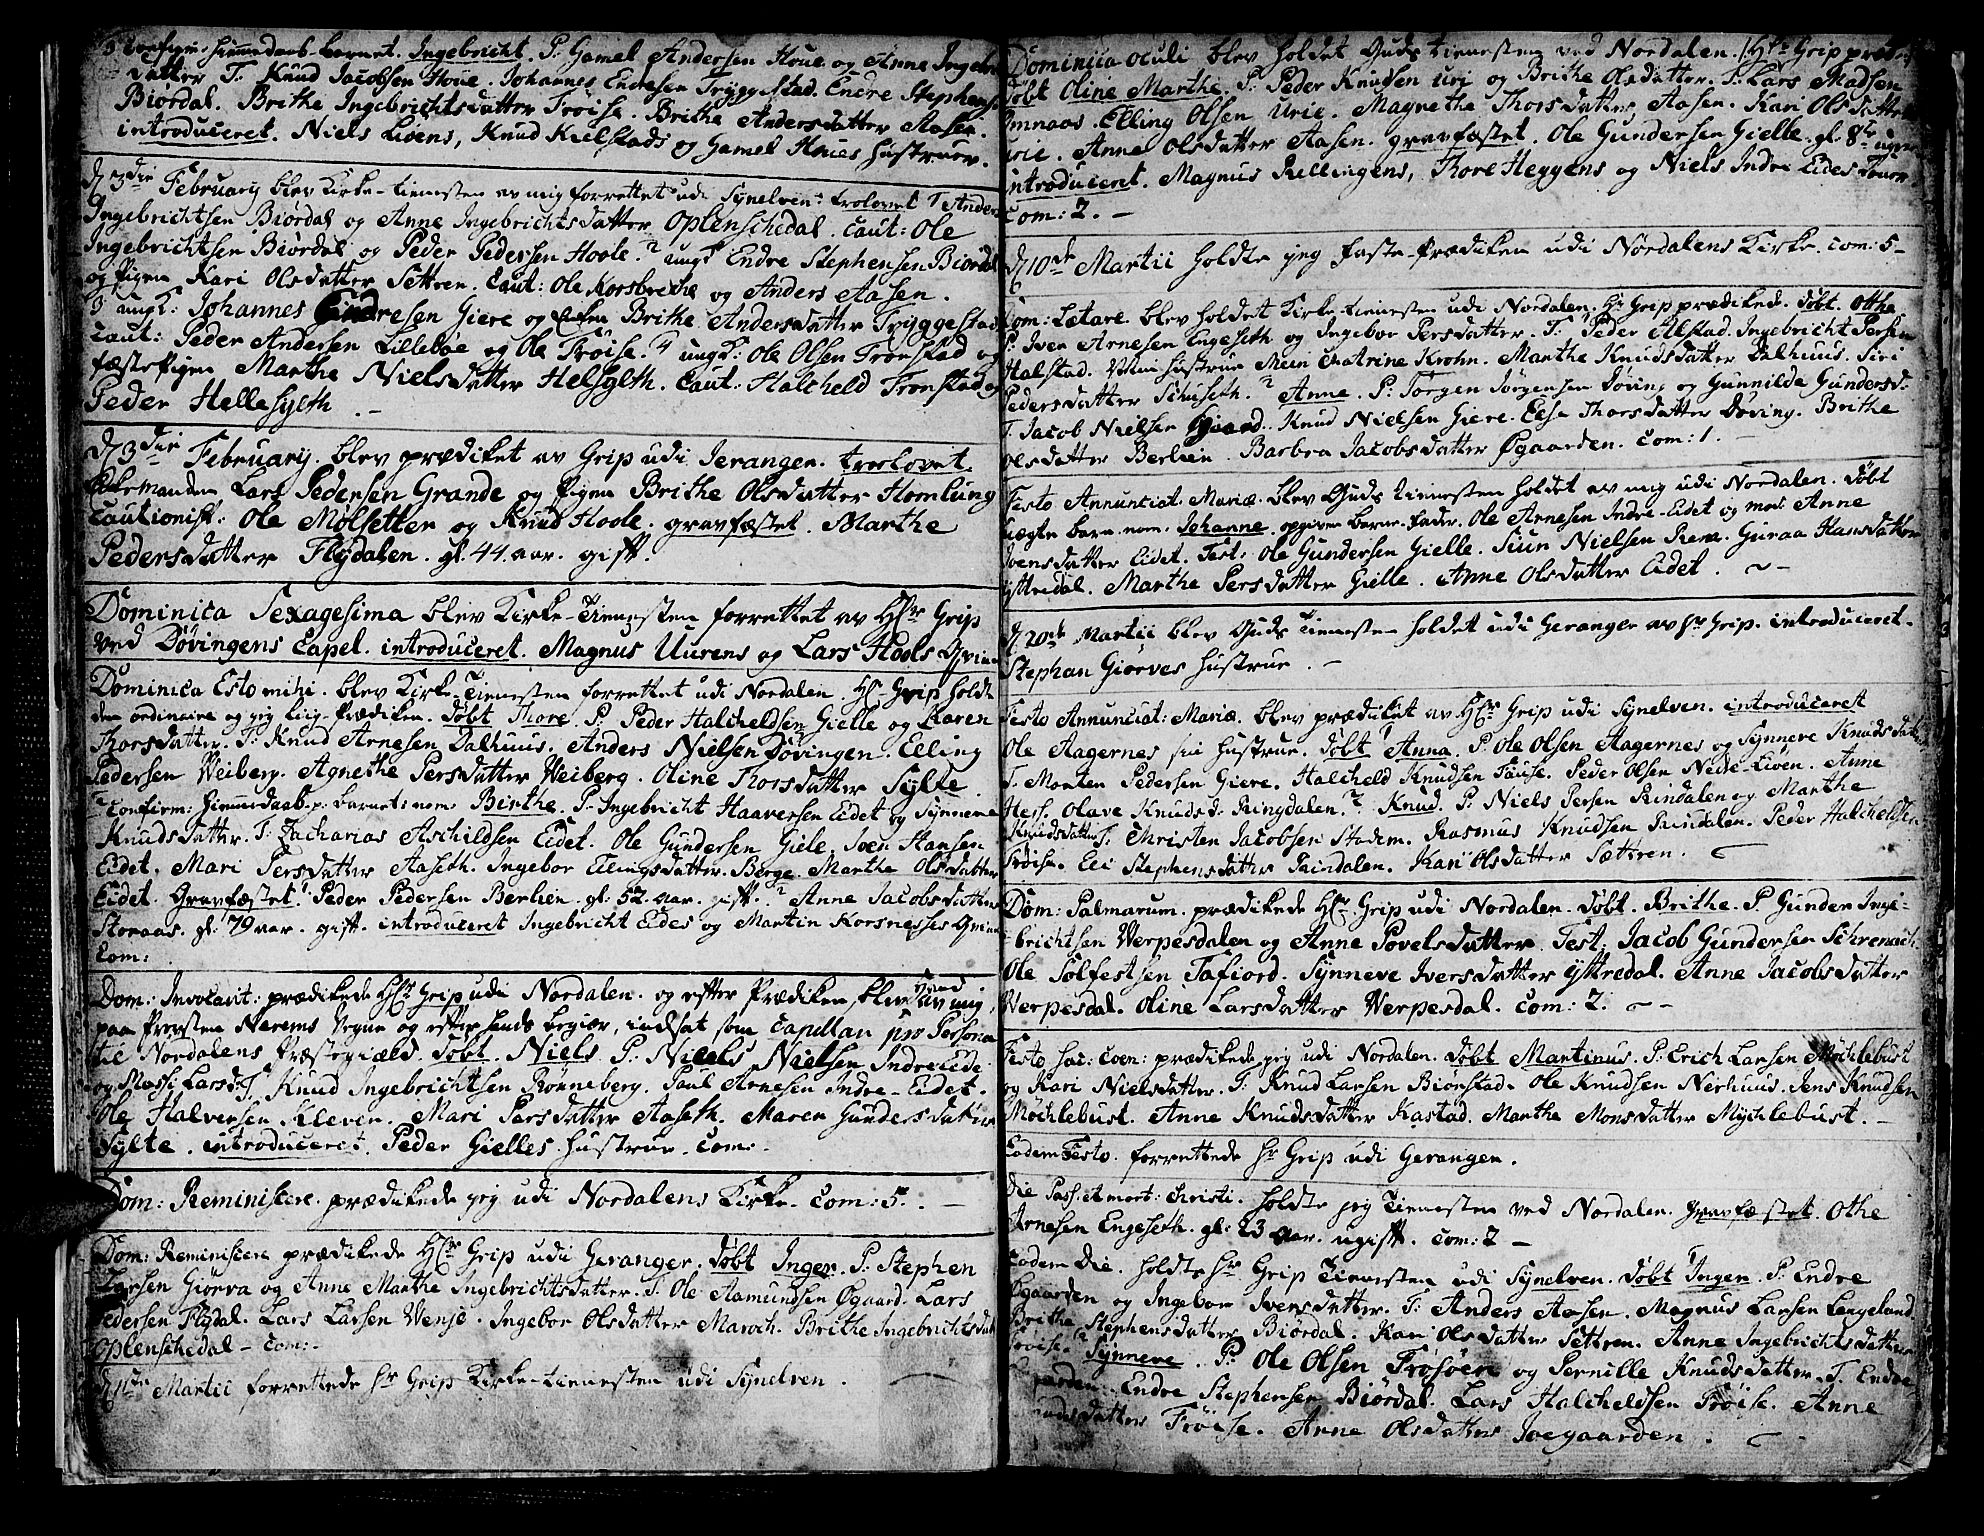 3 Confirm: hiemmedaab. barnet. Ingebricht. P. Gamel Andersen Houe og Anne Ingebrichts
Datter T. Knud Jacobsen Houe. Johannes Endresen Tryggestad. Endre Stephens.
Biørdal. Brithe Ingebrichtsdatter Frøise. Brithe Andersdatter Aasen.
introduceret. Niels Liøens, Knud Kielstads og Gamel Houes Hustruer.
d 3die February blev Kirke-tienesten av mig forrettet udi Synelven. trolovet 1 Anders
Ingebrichtsen Biørdal og Anne Ingebrichtsdatter Oplenschedal. Caut: Ole
Ingebrichtsen Biørdal og Peder Pedersen Hoole. 2 ungk Endre Stephensen Biørdal
og Pigen Kari Olsdatter Settren. Caut: Ole Korsbrecke og Anders Aasen.
3 ungk: Johannes Endresen Giere og Pigen Brithe Andersdatter Tryggestad
Caut: Peder Andersen Lillebøe og Ole Frøise. 4 ungk: Ole Olsen Tronstad og
fæstepigen Marthe Nielsdatter Helsylth. Caut: Halcheld Tronstad og
Peder Hellesylth. -
d 3die February. blev prædiket av Grip udi Jeranger. troelovet.
Enkemanden Lars Pedersen Grande og Pigen Brithe Olsdatter Homlung
Cautionist: Ole Mølsetter og Knud Hoole. gravfæstet. Marthe
Pedersdatter Flydalen. gl. 44. aar. gift.
Dominica Sexagesima blev Kirke-Tienesten forrettet av Hr Grip
ved Døvingens Capel. introduceret. Magnus Uurens og Lars Hools Qvinde
Dominica Esto mihi. blev Kirke-Tienesten forrettet udi Nordalen. Hr Grip holdt
den ordinaire og jeg Liig-Prædiken. døbt Thore. P. Peder Halcheldsen Gielle og Karen
Thorsdatter. T. Knud Arnesen Dalhuus. Anders Nielsen Døvingen. Elling
Pedersen Weiberg. Agnethe Persdatter Weiberg. Oline Thorsdatter Sylte.
Confirm: Hiemmedaab p. barnet: nom: Birthe. P. Ingebricht Haaversen Eidet og Synneve
Knudsdatter. T. Zacharias Aschildsen Eidet. Ole Gundersen Giele. Joen Hansen
Eidet. Mari Persdatter Aaseth. Ingebor Ellingsdatter Berge. Marthe Olsdatter
Eidet. Gravfæstet. Peder Pedersen Berlien. gl. 52. aar. gift. 2 Anne Jacobsdatter
Storaas. gl. 79 aar. gift. introduceret Ingebricht Eides og Martin Korsnesses Qvinde
Com:
Dom: Invocavit: prædikede Hr Grip udi Nordalen. og efter Prædiken blev av mig
paa Provsten Nerems Vegne og efter hands begiær, indsat som Capellan pro Persona
til Nordalens Præstegiæld. døbt. Niels. P. Niels Nielsen Indre Eide
og Massi Larsd. T. Knud Ingebrichtsen Rønneberg. Paul Arnesen Indre-Eidet.
Ole Halversen Kleven. Mari Persdatter Aaseth. Maren Gundersdatter
Sylte. introduceret. Peder Gielles Hustrue. Com:
Dom: Reminiscere. prædikede jeg udi Nordalens Kirke. Com: 5. -
Dom: Reminiscere prædikede Hr Grip udi Geranger. døbt Inger. P. Stephen
Larsen Giørva og Anne Marthe Ingebrichtsdatter. T. Ole Aamundsen Øgaard. Lars
Pedersen Flydal. Lars Larsen Wenje. Ingebor Olsdatter Maroch. Brithe Ingebrichtsdatt
Oplenschedal - Com:
d 11te Martii forrettede Hr Grip Kirke-tienesten udi Synelven.
Dominica Oculi blev holdet Guds tienesten ved Nordalen. Hr Grip præd.
døbt Oline Marthe. P. Peder Knudsen Uri og Brithe Olsdatter. T. Lars Madsen
Omnaas. Elling Olsen Urie. Magnethe Thorsdatter Aasen. Kari Olsdatter
Urie. Anne Olsdatter Aasen. gravfæstet. Ole Gundersen Gielle. gl. 8te uger
introduceret. Magnus Rellingens, Thore Heggens og Niels Indre Eides Koner
Com: 2. -
d 10de Martii holdte jeg faste-Prædiken udi Nordalens Kirke. Com: 5 -
Dom: Lætare. blev holdet Kirke-tienesten udi Nordalen, Hr Grip prædikede. døbt. Othe
P. Iver Arnesen Engeseth og Ingebor Persdatter. T. Peder Alstad. Ingebricht Persen
Halstad. Min Hustrue Mein Chatrine Krohn. Marthe Knudsdatter Dalhuus. Siri
Pedersdatter Schuseth. 2 Anne. P. Jørgen Jørgensen Døving og Gunnilde Gundersd.
T. Jacob Nielsen Giære. Knud Nielsen Giere. Else Thorsdatter Døving. Brithe
Olsdatter Berlien. Barbra Jacobsdatter Øgaarden. Com: 1. -
Festo Annunciat. Mariæ. blev Guds tienesten holdet av mig udi Nordalen. døbt
uægte barn nom. Johanne. opgiven barne-fader. Ole Arnesen Indre-Eidet og mod. Anne
Joensdatter Eidet. Test: Ole Gundersen Gielle. Siur Nielsen Rem. Guraa Hansdatter
Yttredal. Marthe Persdatter Gielle. Anne Olsdatter Eidet. -
d 20de Martii blev Guds Tienesten holdet udi Geranger av Hr Grip. introduceret.
Stephan Giørves Hustrue. -
Festo Annunciat: Mariæ. blev prædiket av Hr Grip udi Synelven. introduceret
Ole Aagernes sin Hustrue. døbt 1 Anna. P. Ole Olsen Aagernes og Synnere Knudsdatter
T. Morten Pedersen Giere. Halcheld Knudsen Tause. Peder Olsen Nede-Liøen. Anne
Hess. Olave Knudsd. Ringdalen. 2 Knud. P. Niels Persen Rindalen og Marthe
Knudsdatter T. Christen Jacobsen Stadem. Rasmus Knudsen Rindalen. Peder Halcheldsen
Frøise. Eli Stephensdatter Rindalen. Kari Olsdatter Sættren.
Dom: Palmarum. prædikede Hr Grip udi Nordalen. døbt. Brithe. P. Gunder Inge-
brichtsen Werpesdalen og Anne Povelsdatter. Test: Jacob Gundersen Schrenach.
Ole Sølfestsen Tafiord. Synneve Iversdatter Yttredal. Anne Jacobsdatter
Werpesdal. Oline Larsdatter Werpesdal. Com: 2. -
Festo Sac: Coen: prædikede jeg udi Nordalen. døbt Martinus. P. Erich Larsen Møchlebust
og Kari Nielsdatter. T. Knud Larsen Biørstad. Ole Knudsen Nerhuus. Jens Knudsen
Møchlebust. Anne Knudsdatter Kastad. Marthe Monsdatter Mychlebust. -
Eodem Festo. forrettede Hr Grip udi Gerangen.
Die Pass: et mort: Christi. holdte jeg Tienesten ved Nordalen. Gravfæstet. Othe
Arnesen Engeseth. gl. 23 aar. ugift. Com: 2 -
Eodem Die. holdte Hr Grip Tienesten udi Synelven. døbt 1 Inger. P. Endre
Øgaarden og Ingebor Iversdatter. T. Anders Aasen. Magnus Larsen Lengeland
Brithe Stephensdatter Biørdal. Kari Olsdatter Settren. Anne Ingebrichtsdatter
Frøise. 2 Synneve. P. Ole Olsen Frøsøen og Pernille Knudsdatter. T. Endre
Øgaarden. Endre Stephensen Biørdal. Lars Halcheldsen Frøise. Anne
Knudsdatter Frøise. Anne Olsdatter Joegaarden.